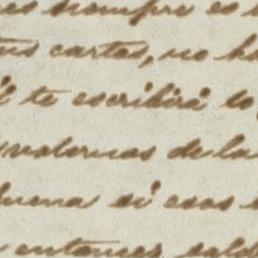 es siempre es
tus cartas, no ha
te escribirá lo
valernos de la
buena si esos
entonces sald